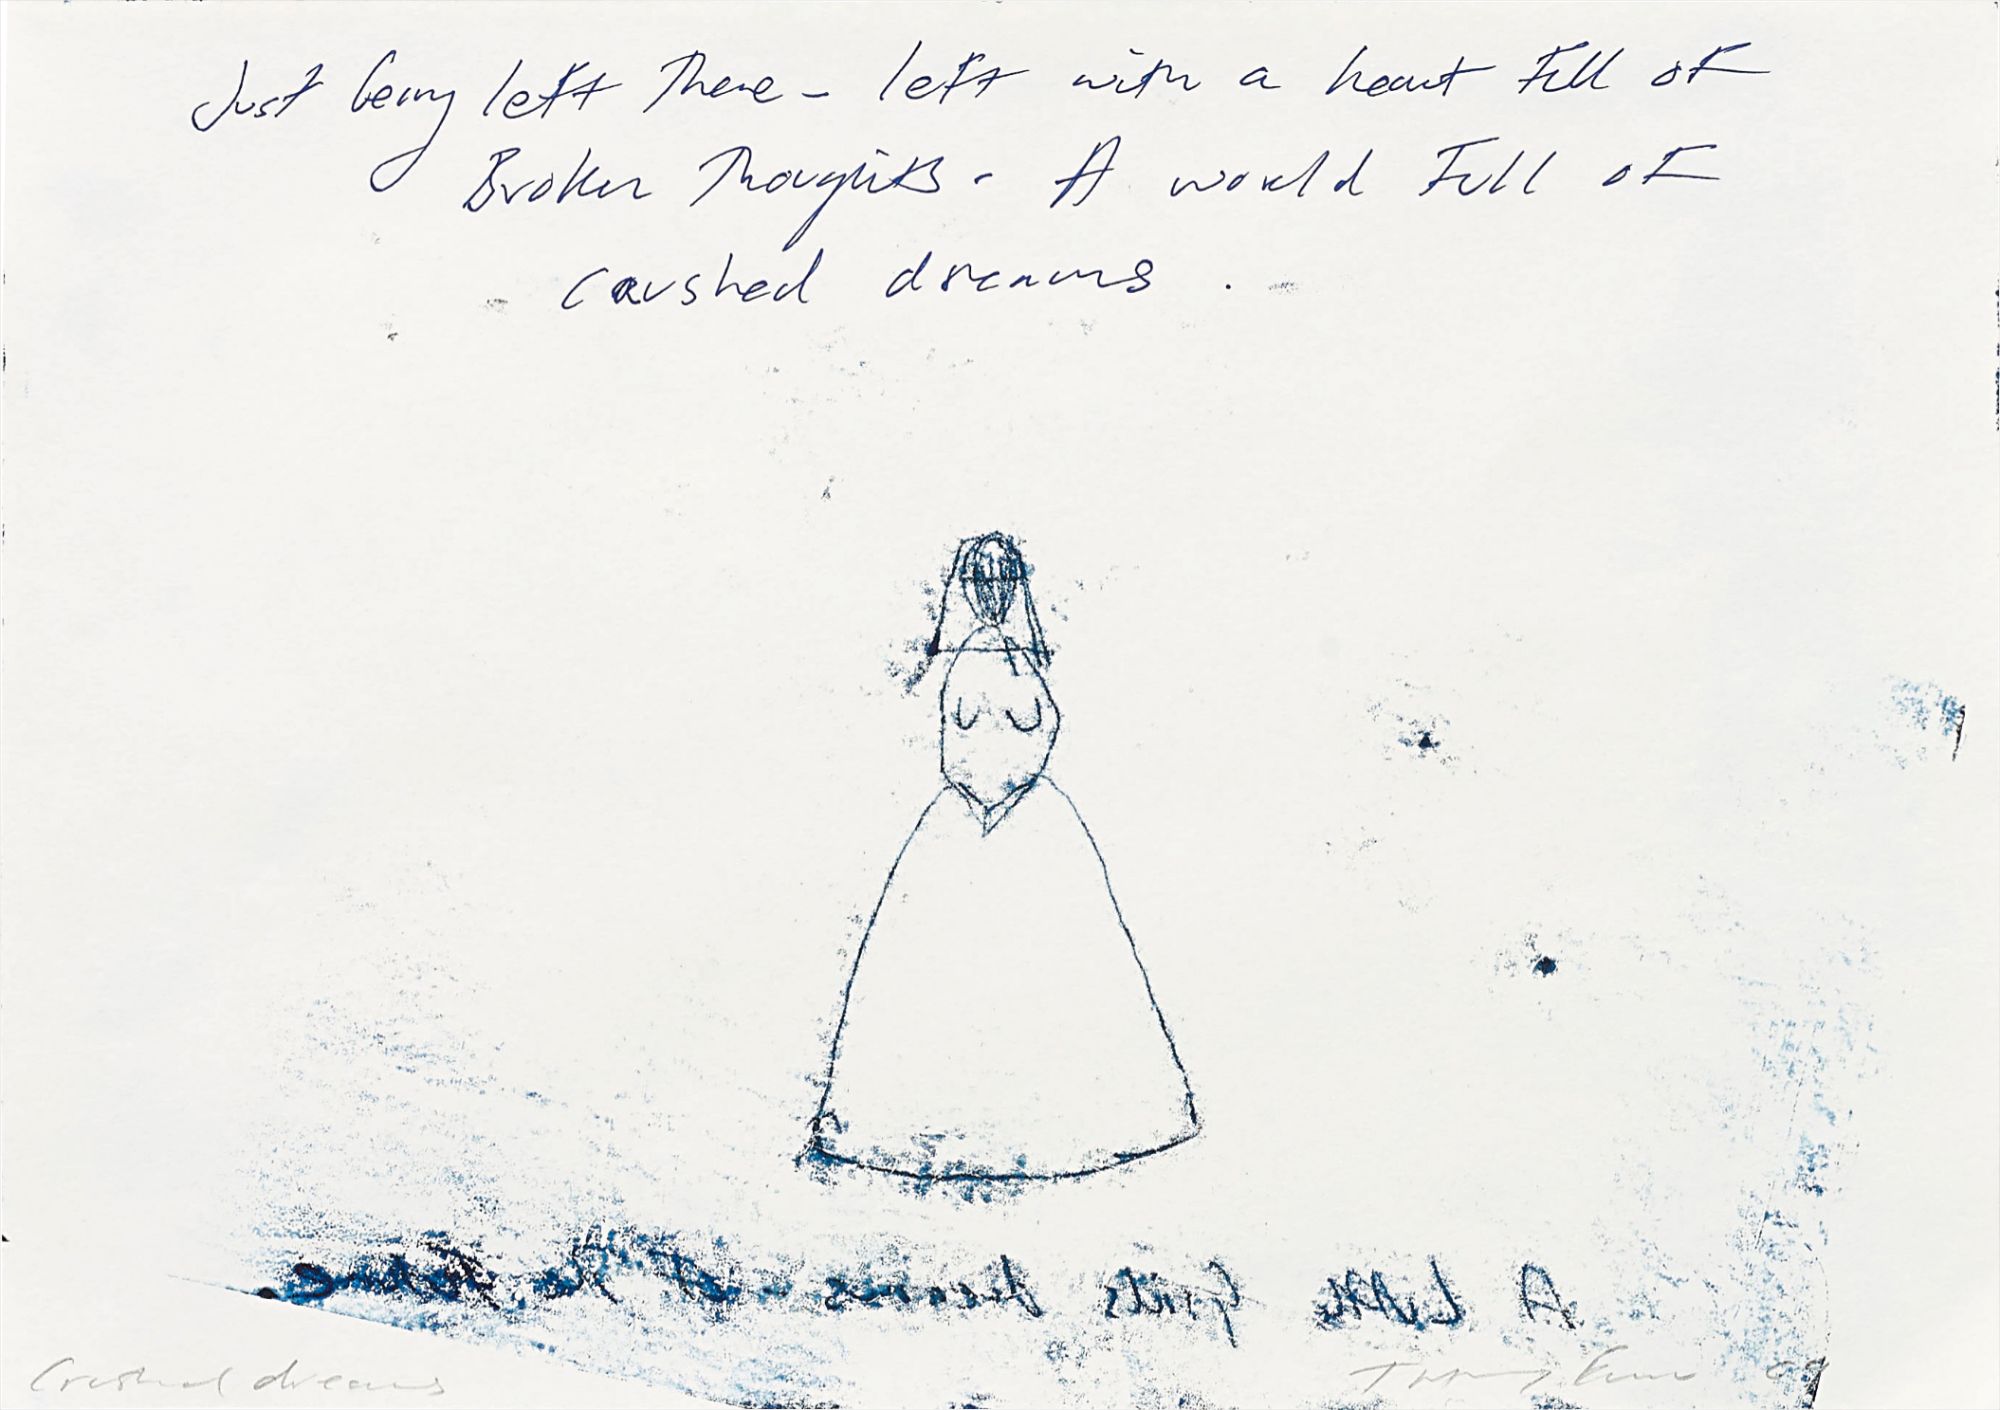 Just being left There - left with a heart Full of
Broken Thoughts - A world Full of
crushed dreams .
A Little Girls dreams - of the Future
Crushed dreams
Tracey Emin 09